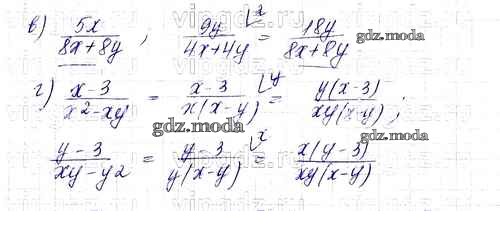 в) 5x/(8x+8y) , 9y/(4x+4y) └2 = 18y/(8x+8y)
gdz.moda
г) (x-3)/(x²-xy) = (x-3)/(x(x-y)) └y = y(x-3)/(xy(x-y)) ;
gdz.moda
gdz.moda
(y-3)/(xy-y2) = (y-3)/(y(x-y)) └x = x(y-3)/(xy(x-y))